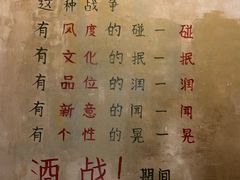 这种战争
有风度的碰一碰
有文化的抿一抿
有品位的润一润
有新意的闻一闻
有个性的晃一晃
酒战！期间